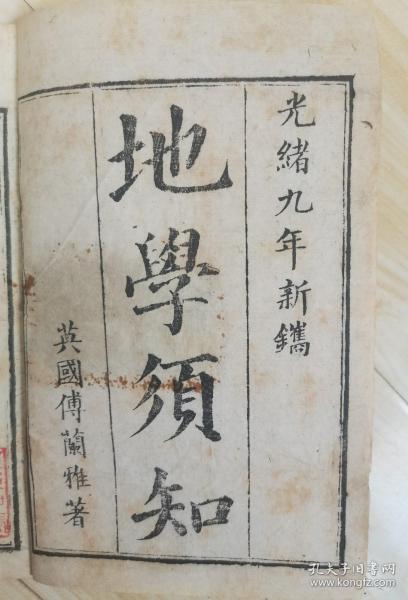 光緒九年新鐫
地學須知
英國傅蘭雅著
孔夫子旧书网
www.kongfz.com